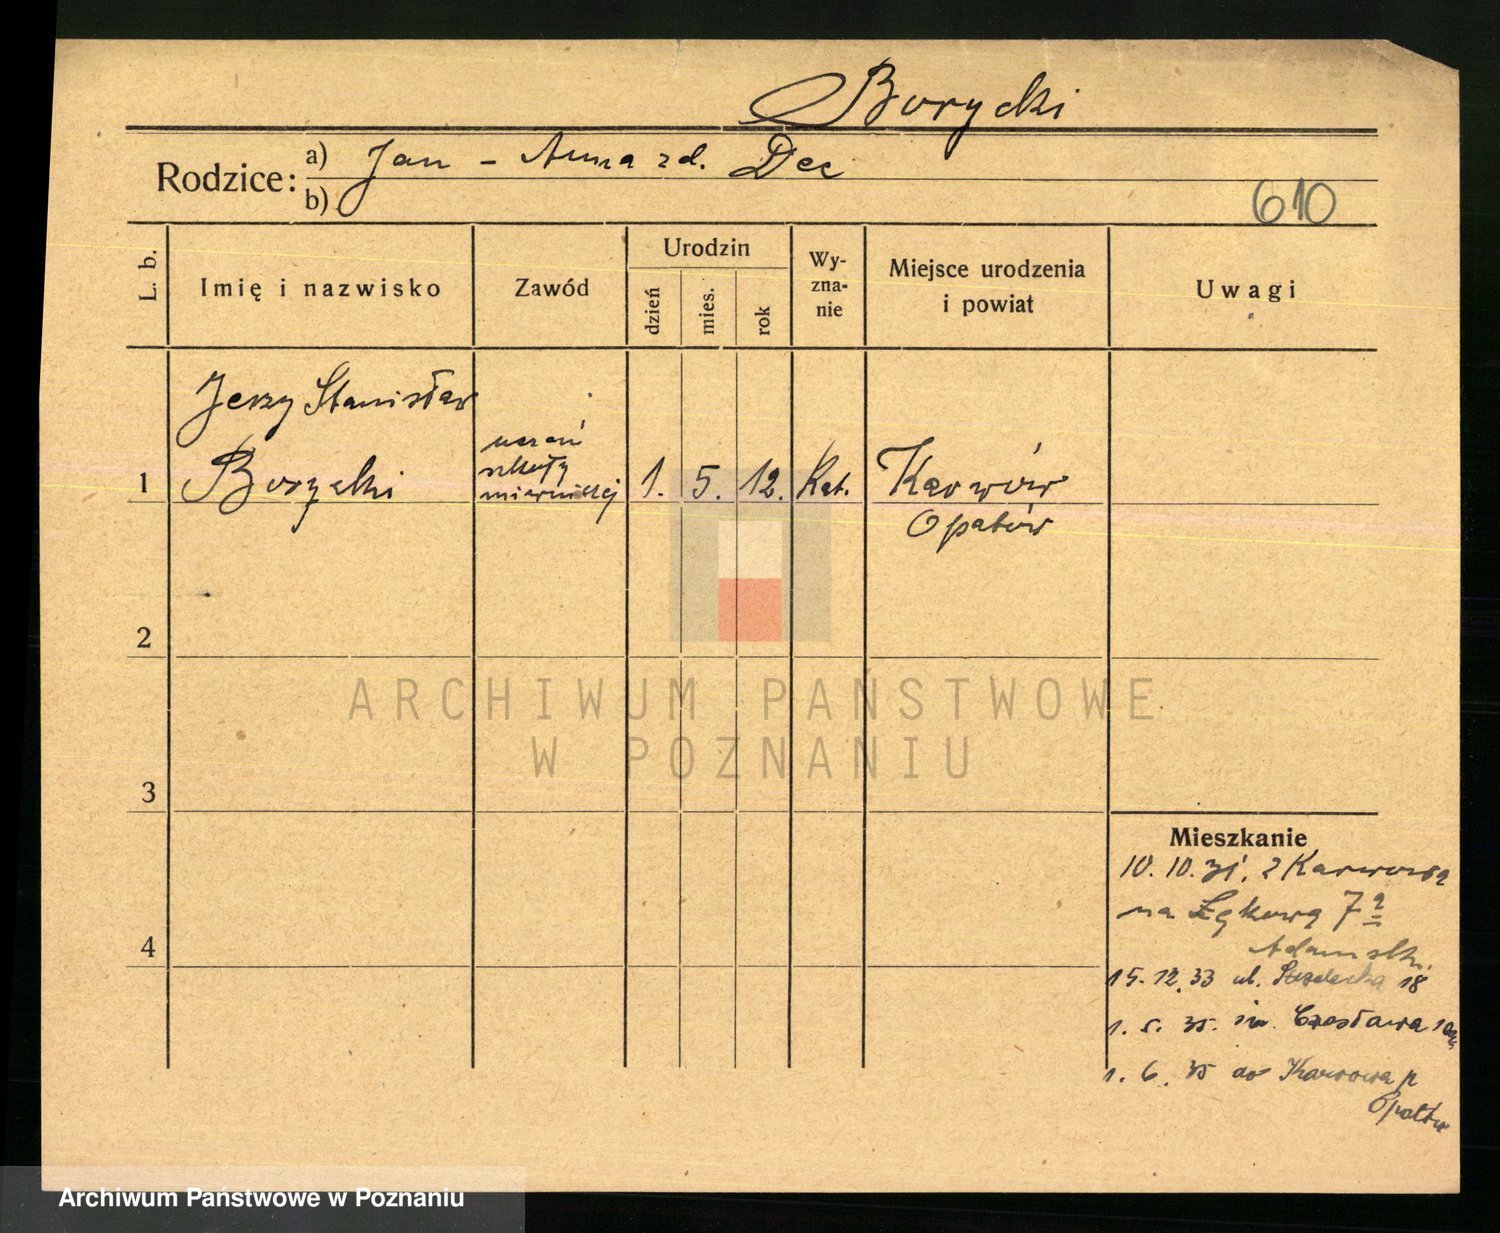 Borycki
Rodzice:
a) Jan - Anna zd. Dec
b)
610
L. b.
Imię i nazwisko
Zawód
Urodzin
dzień
mies.
rok
Wy-
zna-
nie
Miejsce urodzenia
i powiat
Uwagi
Jerzy Stanisław
1 Borycki
uczeń
szkoły
mierniczej
1. 5. 12. Kat. Karwów
Opatów
2
3
4
ARCHIWUM PAŃSTWOWE
W POZNANIU
Mieszkanie
10. 10. 31. z Karwowa
na Łąkową 7a
Adamsk.
15. 12. 33 ul. Strzelecka 18
1. 5. 35. św. Czesława
1. 6. 35 do Karwowa p
Opatów
Archiwum Państwowe w Poznaniu